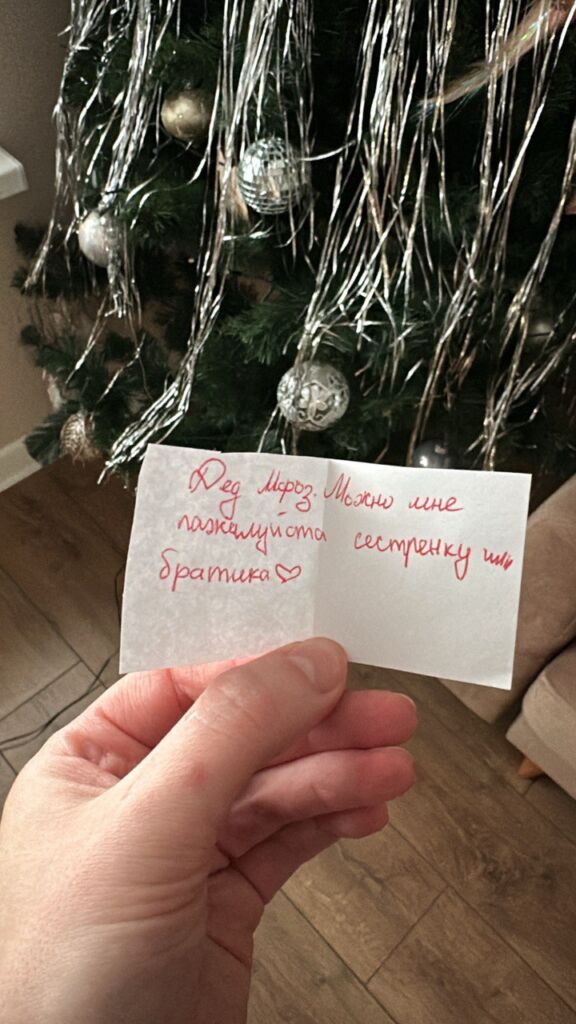 Дед Мороз. Можно мне
пажалуйста сестренку или
братика♡